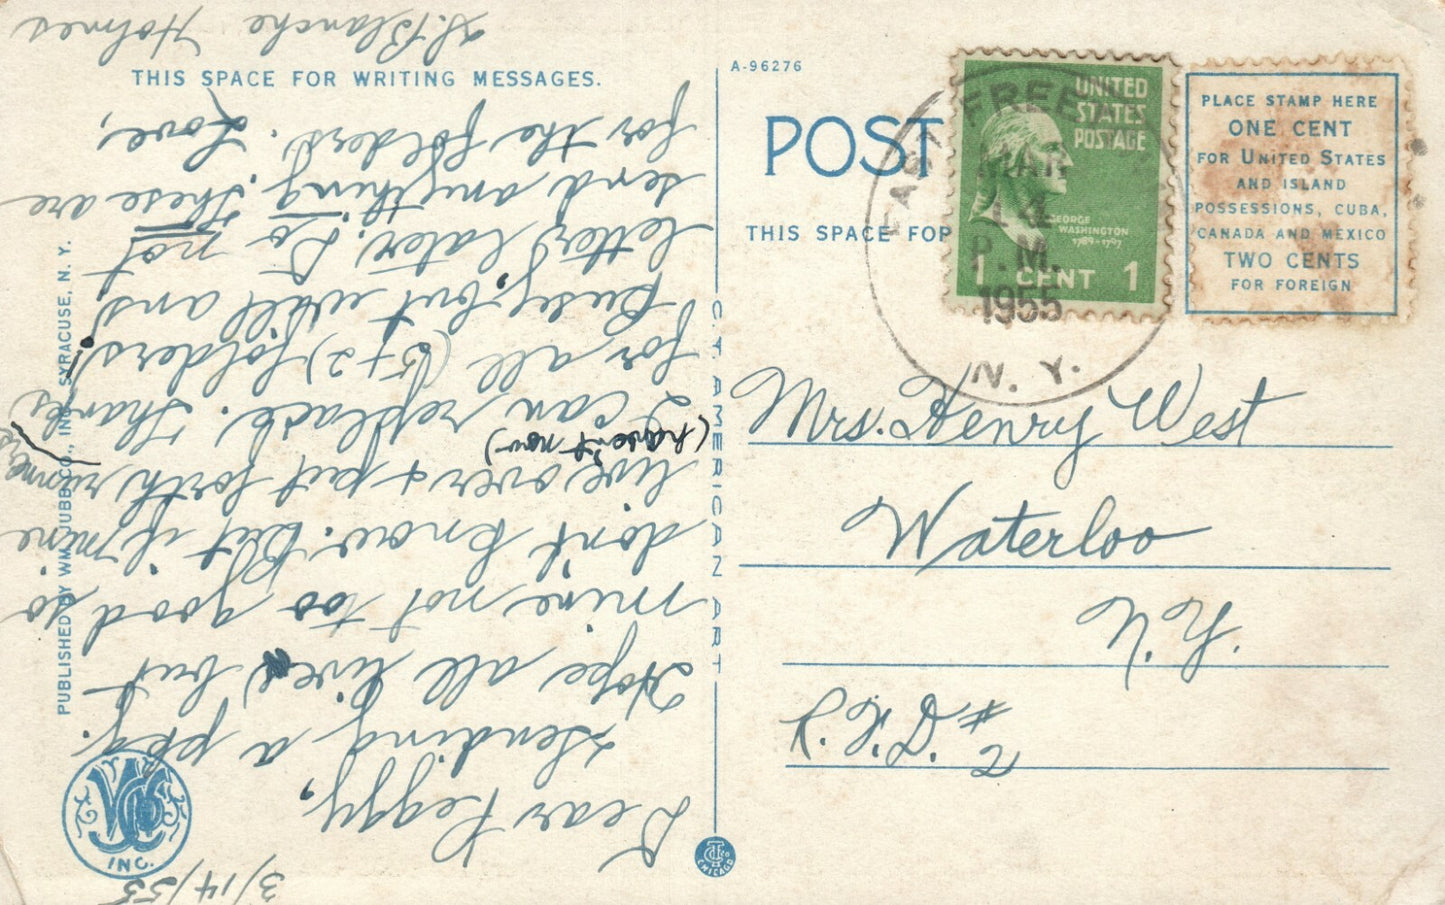 THIS SPACE FOR WRITING MESSAGES.
A-96276
POST
THIS SPACE FOR
PLACE STAMP HERE
ONE CENT
FOR UNITED STATES
AND ISLAND
POSSESSIONS, CUBA,
CANADA AND MEXICO
TWO CENTS
FOR FOREIGN
UNITED
STATES
POSTAGE
GEORGE
WASHINGTON
1789-1797
1 CENT 1
EAST FREE
MAR
14
P.M.
1955
N. Y.
Mrs. Henry West
Waterloo
N.Y.
R.F.D. #2
PUBLISHED BY WM. JUBB CO., INC., SYRACUSE, N. Y.
C.T. AMERICAN ART
INC.
CHICAGO
3/14/55
Dear Peggy,
Sending a pkg.
Hope all lives but
mine not too good so
don't know. But if mine
live over & put forth,
(haven't now)
I can replace. Thanks
for all (5+2) folders!
Busy, but will ans.
letters later. Do not
send anything. These are
for the folders. Love,
S. Blanche
Holmes